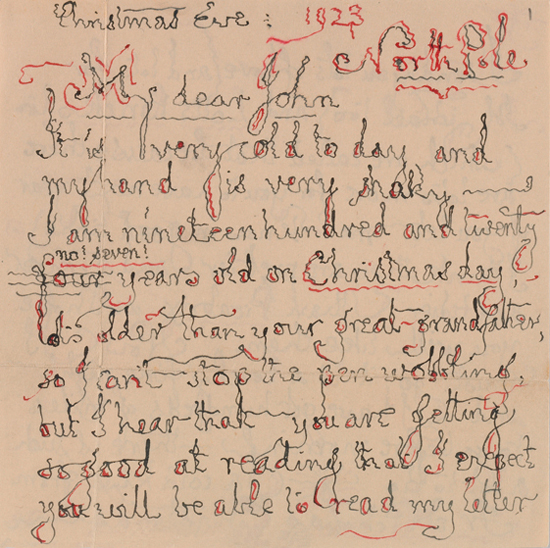 Christmas Eve : 1923
1
North Pole
My dear John
It is very cold to day and
my hand is very shaky
I am nineteen hundred and twenty
no! seven!
four years old on Christmas day,
lots older than your great-grandfather,
so I can't stop the pen wobbling,
but I hear that you are getting
so good at reading that I expect
you will be able to read my letter